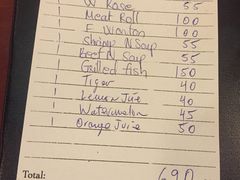 1 W Rose 55
1 Meat Roll 100
1 F Wanton 100
1 Shrimp N Soup 55
1 Beef N Soup 55
1 Grilled fish 150
1 Tiger 40
1 Lemon Juie 40
1 Watermelon 45
1 Orange Juice 50
Total: 690